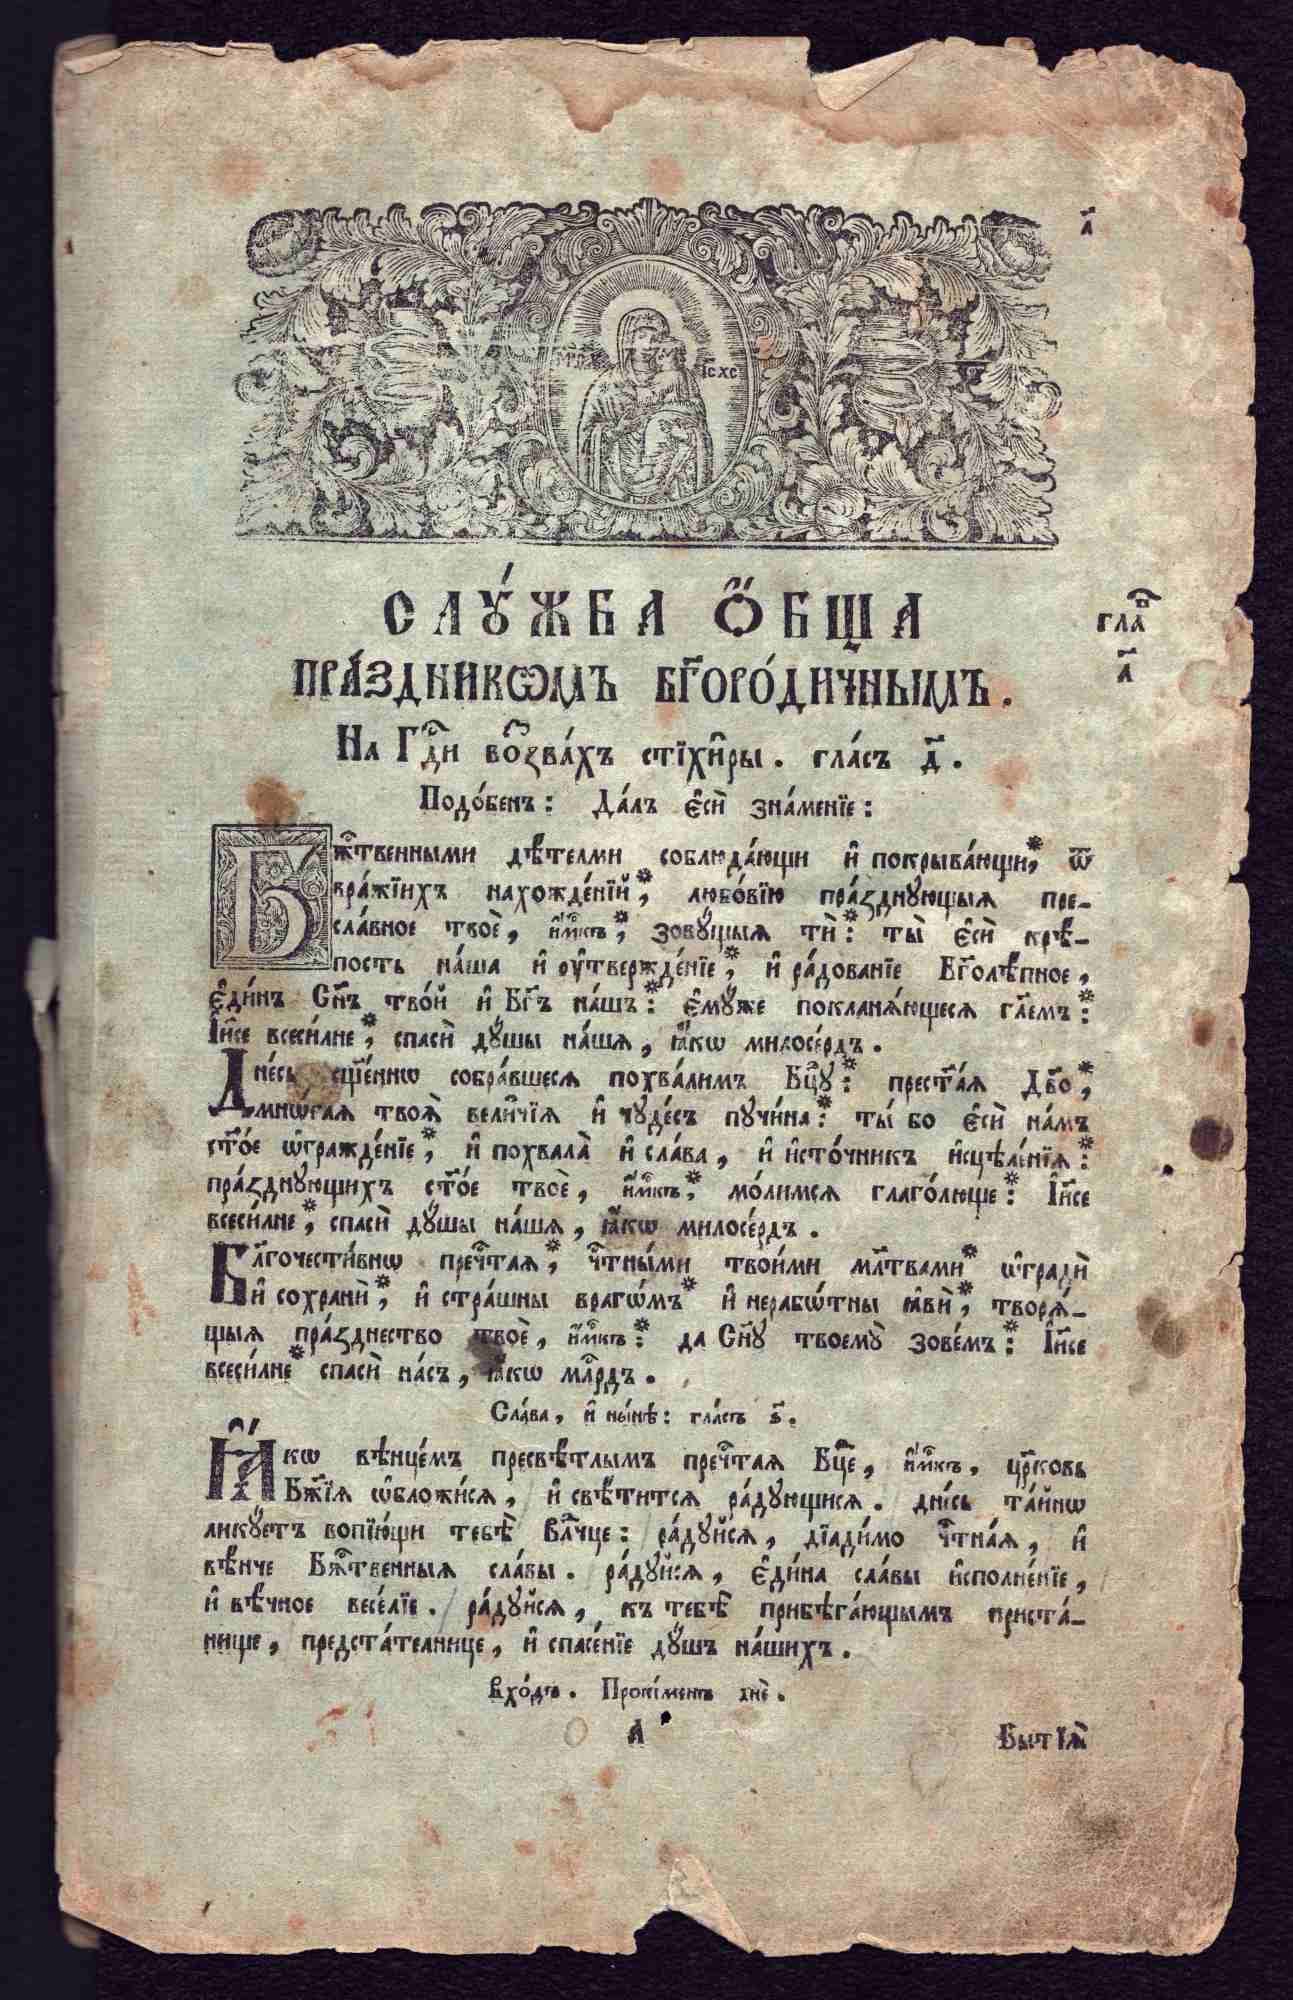 а҃
І҃С ХС
СЛꙋ́ЖБА Ѻ҆́БЩА
ПРА́ЗДНИКѠМЪ БГ҃ОРО́ДИЧНЫМЪ.
глⷡ҇а
а҃
На Гдⷭ҇и воззва́хъ стїхи̑ры. гла́съ д҃.
Подо́бенъ: Да́лъ є҆сѝ зна́менїе:
Бжⷭ҇твенными дѣ́телми соблюда́ющи и҆ покрыва́ющи,* ѿ
вра́жїихъ нахожде́нїй,* любо́вїю пра́зднующыя пре-
сла́вное твоѐ, и҆́мⷬ҇къ,* зовꙋ́щыя тѝ:* ты̀ є҆сѝ крѣ́-
пость на́ша и҆ ᲂу҆твержде́нїе,* и҆ ра́дованїе Бг҃олѣ́пное,
є҆ди́нъ Сн҃ъ тво́й и҆ Бг҃ъ на́шъ:* є҆мꙋ́же покланѧ́ющесѧ гл҃емъ:*
І҆и҃се всеси́лне,* спасѝ дꙋ́шы на́шѧ, ꙗ҆́кѡ милосе́рдъ.
Дне́сь сщ҃е́ннѡ собра́вшесѧ похва́лимъ Бцⷣу:* прест҃а́ѧ Дв҃о,*
мнѡ́гаѧ твоѧ̑ вели̑чїѧ и҆ чꙋде́съ пꙋчи́на:* ты́ бо є҆сѝ на́мъ
ст҃о́е ѡ҆гражде́нїе,* и҆ похвала̀ и҆ сла́ва, и҆ и҆сто́чникъ и҆сцѣле́нїѧ:*
пра́зднующихъ ст҃о́е твоѐ, и҆́мⷬ҇къ,* мо́лимсѧ глаго́люще:* І҆и҃се
всеси́лне,* спасѝ дꙋ́шы на́шѧ, ꙗ҆́кѡ милосе́рдъ.
Бл҃гочести́внѡ пречⷭ҇таѧ,* чⷭ҇тны́ми твои́ми мл҃твами* ѡ҆градѝ
и҆ сохранѝ,* и҆ стра́шны врагѡ́мъ* и҆ нерабѡ́тны ꙗ҆вѝ,* творѧ́-
щыѧ пра́зднество твоѐ, и҆́мⷬ҇къ:* да Сн҃ꙋ твоемꙋ̀ зове́мъ:* І҆и҃се
всеси́лне* спасѝ на́съ, ꙗ҆́кѡ млⷭ҇рдъ.
Сла́ва, и҆ ны́нѣ: гла́съ ѕ҃.
Ꙗ҆́кѡ вѣнце́мъ пресвѣ́тлымъ пречⷭ҇таѧ Бцⷣе, и҆́мⷬ҇къ, цр҃ковь
Бж҃їѧ ѡ҆бложи́сѧ, и҆ свѣ́титсѧ ра́дующисѧ. дне́сь та́йнѡ
ликꙋ́етъ вопїю́щи тебѣ̀ Влⷣчце: ра́дуйсѧ, дїади́мо чⷭ҇тна́ѧ, и҆
вѣ́нче Бжⷭ҇твенныѧ сла́вы. ра́дуйсѧ, є҆ди́на сла́вы и҆сполне́нїе,
и҆ вѣ́чное весе́лїе. ра́дуйсѧ, къ тебѣ̀ прибѣга́ющымъ приста́-
нище, предста́телнице, и҆ спасе́нїе дꙋ́шъ на́шихъ.
Вхо́дъ. Прокі́менъ днѐ.
А
Бытїѧ̀